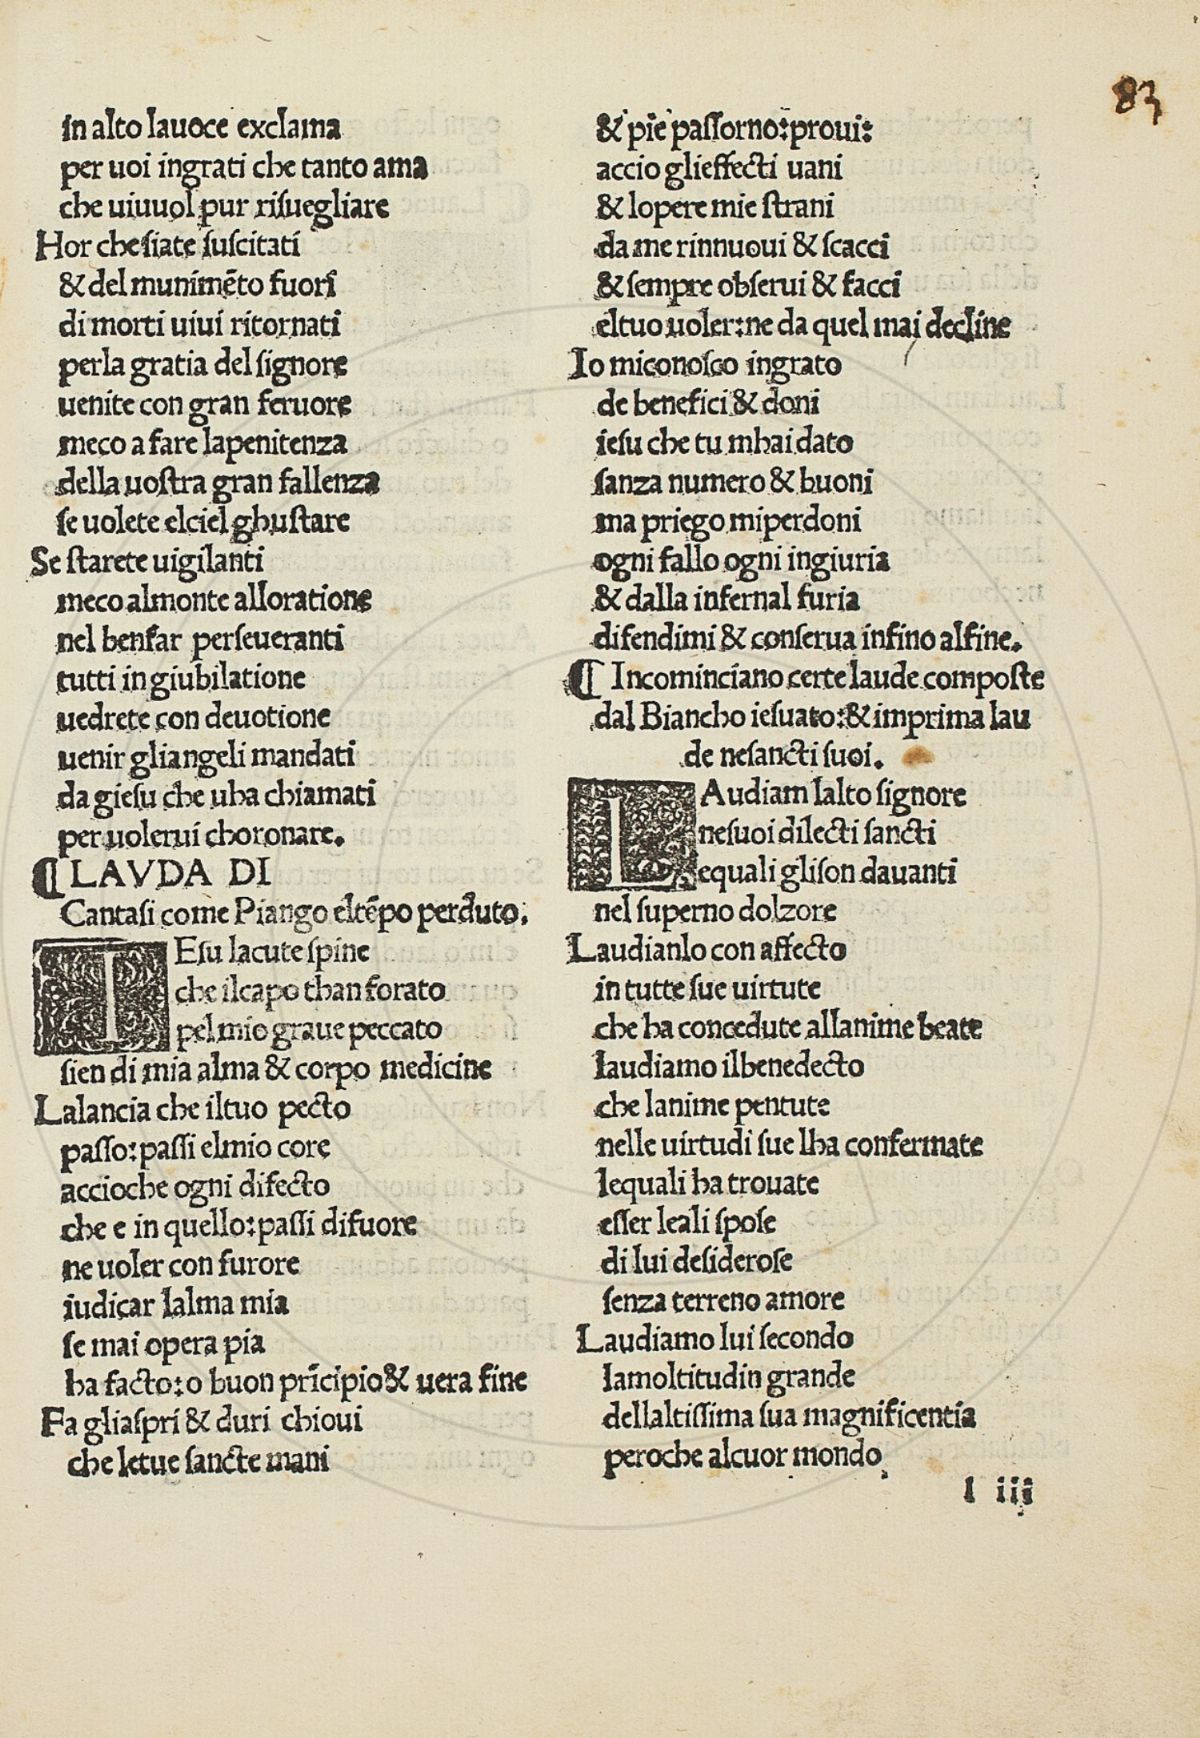 83
in alto lauoce exclama
per uoi ingrati che tanto ama
che uiuuol pur riſuegliare
Hor che ſiate ſuſcitati
& del munimēto fuori
di morti uiui ritornati
perla gratia del ſignore
uenite con gran feruore
meco a fare lapenitenza
della uoſtra gran fallenza
ſe uolete elciel ghuſtare
Se ſtarete uigilanti
meco almonte alloratione
nel benfar perſeueranti
tutti in giubilatione
uedrete con deuotione
uenir gliangeli mandati
da gieſu che uha chiamati
per uolerui choronare.
¶ LAVDA DI
Cantaſi come Piango eltēpo perduto.
IEſu lacute ſpine
che ilcapo than forato
pel mio graue peccato
ſien di mia alma & corpo medicine
Lalancia che iltuo pecto
paſſo: paſſi elmio core
accioche ogni difecto
che e in quello: paſſi difuore
ne uoler con furore
iudicar lalma mia
ſe mai opera pia
ha facto: o buon prīcipio & uera fine
Fa gliaſpri & duri chioui
che letue ſancte mani
& pie paſſorno: proui:
accio glieffecti uani
& lopere mie ſtrani
da me rinnuoui & ſcacci
& ſempre obſerui & facci
eltuo uoler: ne da quel mai decline
Io miconoſco ingrato
de benefici & doni
ieſu che tu mhai dato
ſanza numero & buoni
ma priego miperdoni
ogni fallo ogni ingiuria
& dalla infernal furia
difendimi & conſerua infino alfine.
¶ Incominciano certe laude compoſte
dal Biancho ieſuato: & imprima lau
de neſancti ſuoi.
LAudiam lalto ſignore
neſuoi dilecti ſancti
equali gliſon dauanti
nel ſuperno dolzore
Laudianlo con affecto
in tutte ſue uirtute
che ha concedute allanime beate
laudiamo ilbenedecto
che lanime pentute
nelle uirtudi ſue lha confermate
lequali ha trouate
eſſer leali ſpoſe
di lui deſideroſe
ſenza terreno amore
Laudiamo lui ſecondo
lamoltitudin grande
dellaltiſſima ſua magnificentia
peroche alcuor mondo
l iii